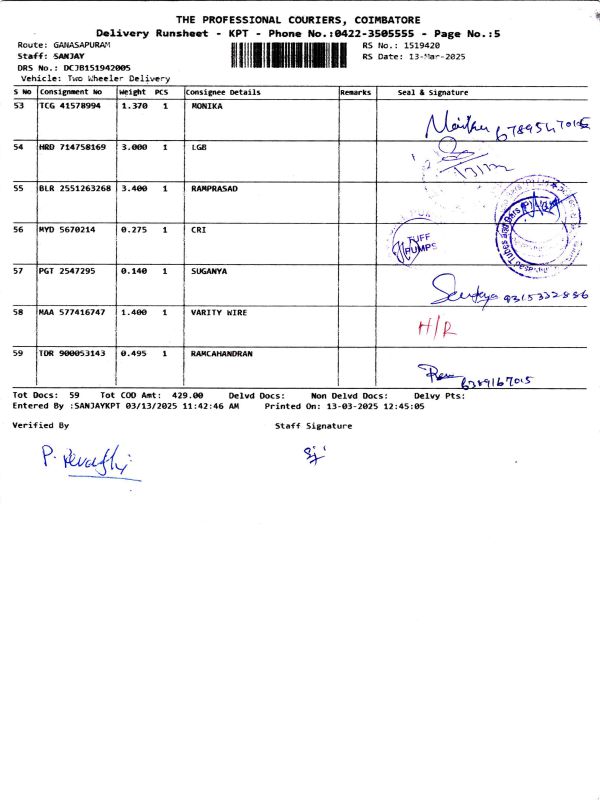 THE PROFESSIONAL COURIERS, COIMBATORE
Delivery Runsheet - KPT - Phone No.:0422-3505555 - Page No.:5
Route: GANASAPURAM RS No.: 1519420
Staff: SANJAY RS Date: 13-Mar-2025
DRS No.: DCJB151942005
Vehicle: Two Wheeler Delivery
S No Consignment No Weight PCS Consignee Details Remarks Seal & Signature
53 TCG 41578994 1.370 1 MONIKA
54 HRD 714758169 3.000 1 LGB
55 BLR 2551263268 3.400 1 RAMPRASAD
56 MYD 5670214 0.275 1 CRI
TUFF
PUMPS
57 PGT 2547295 0.140 1 SUGANYA
9315332886
58 MAA 577416747 1.400 1 VARITY WIRE H/R
59 TDR 900053143 0.495 1 RAMCAHANDRAN
Ram
6389167015
Tot Docs: 59 Tot COD Amt: 429.00 Delvd Docs: Non Delvd Docs: Delvy Pts:
Entered By :SANJAYKPT 03/13/2025 11:42:46 AM Printed On: 13-03-2025 12:45:05
Verified By Staff Signature